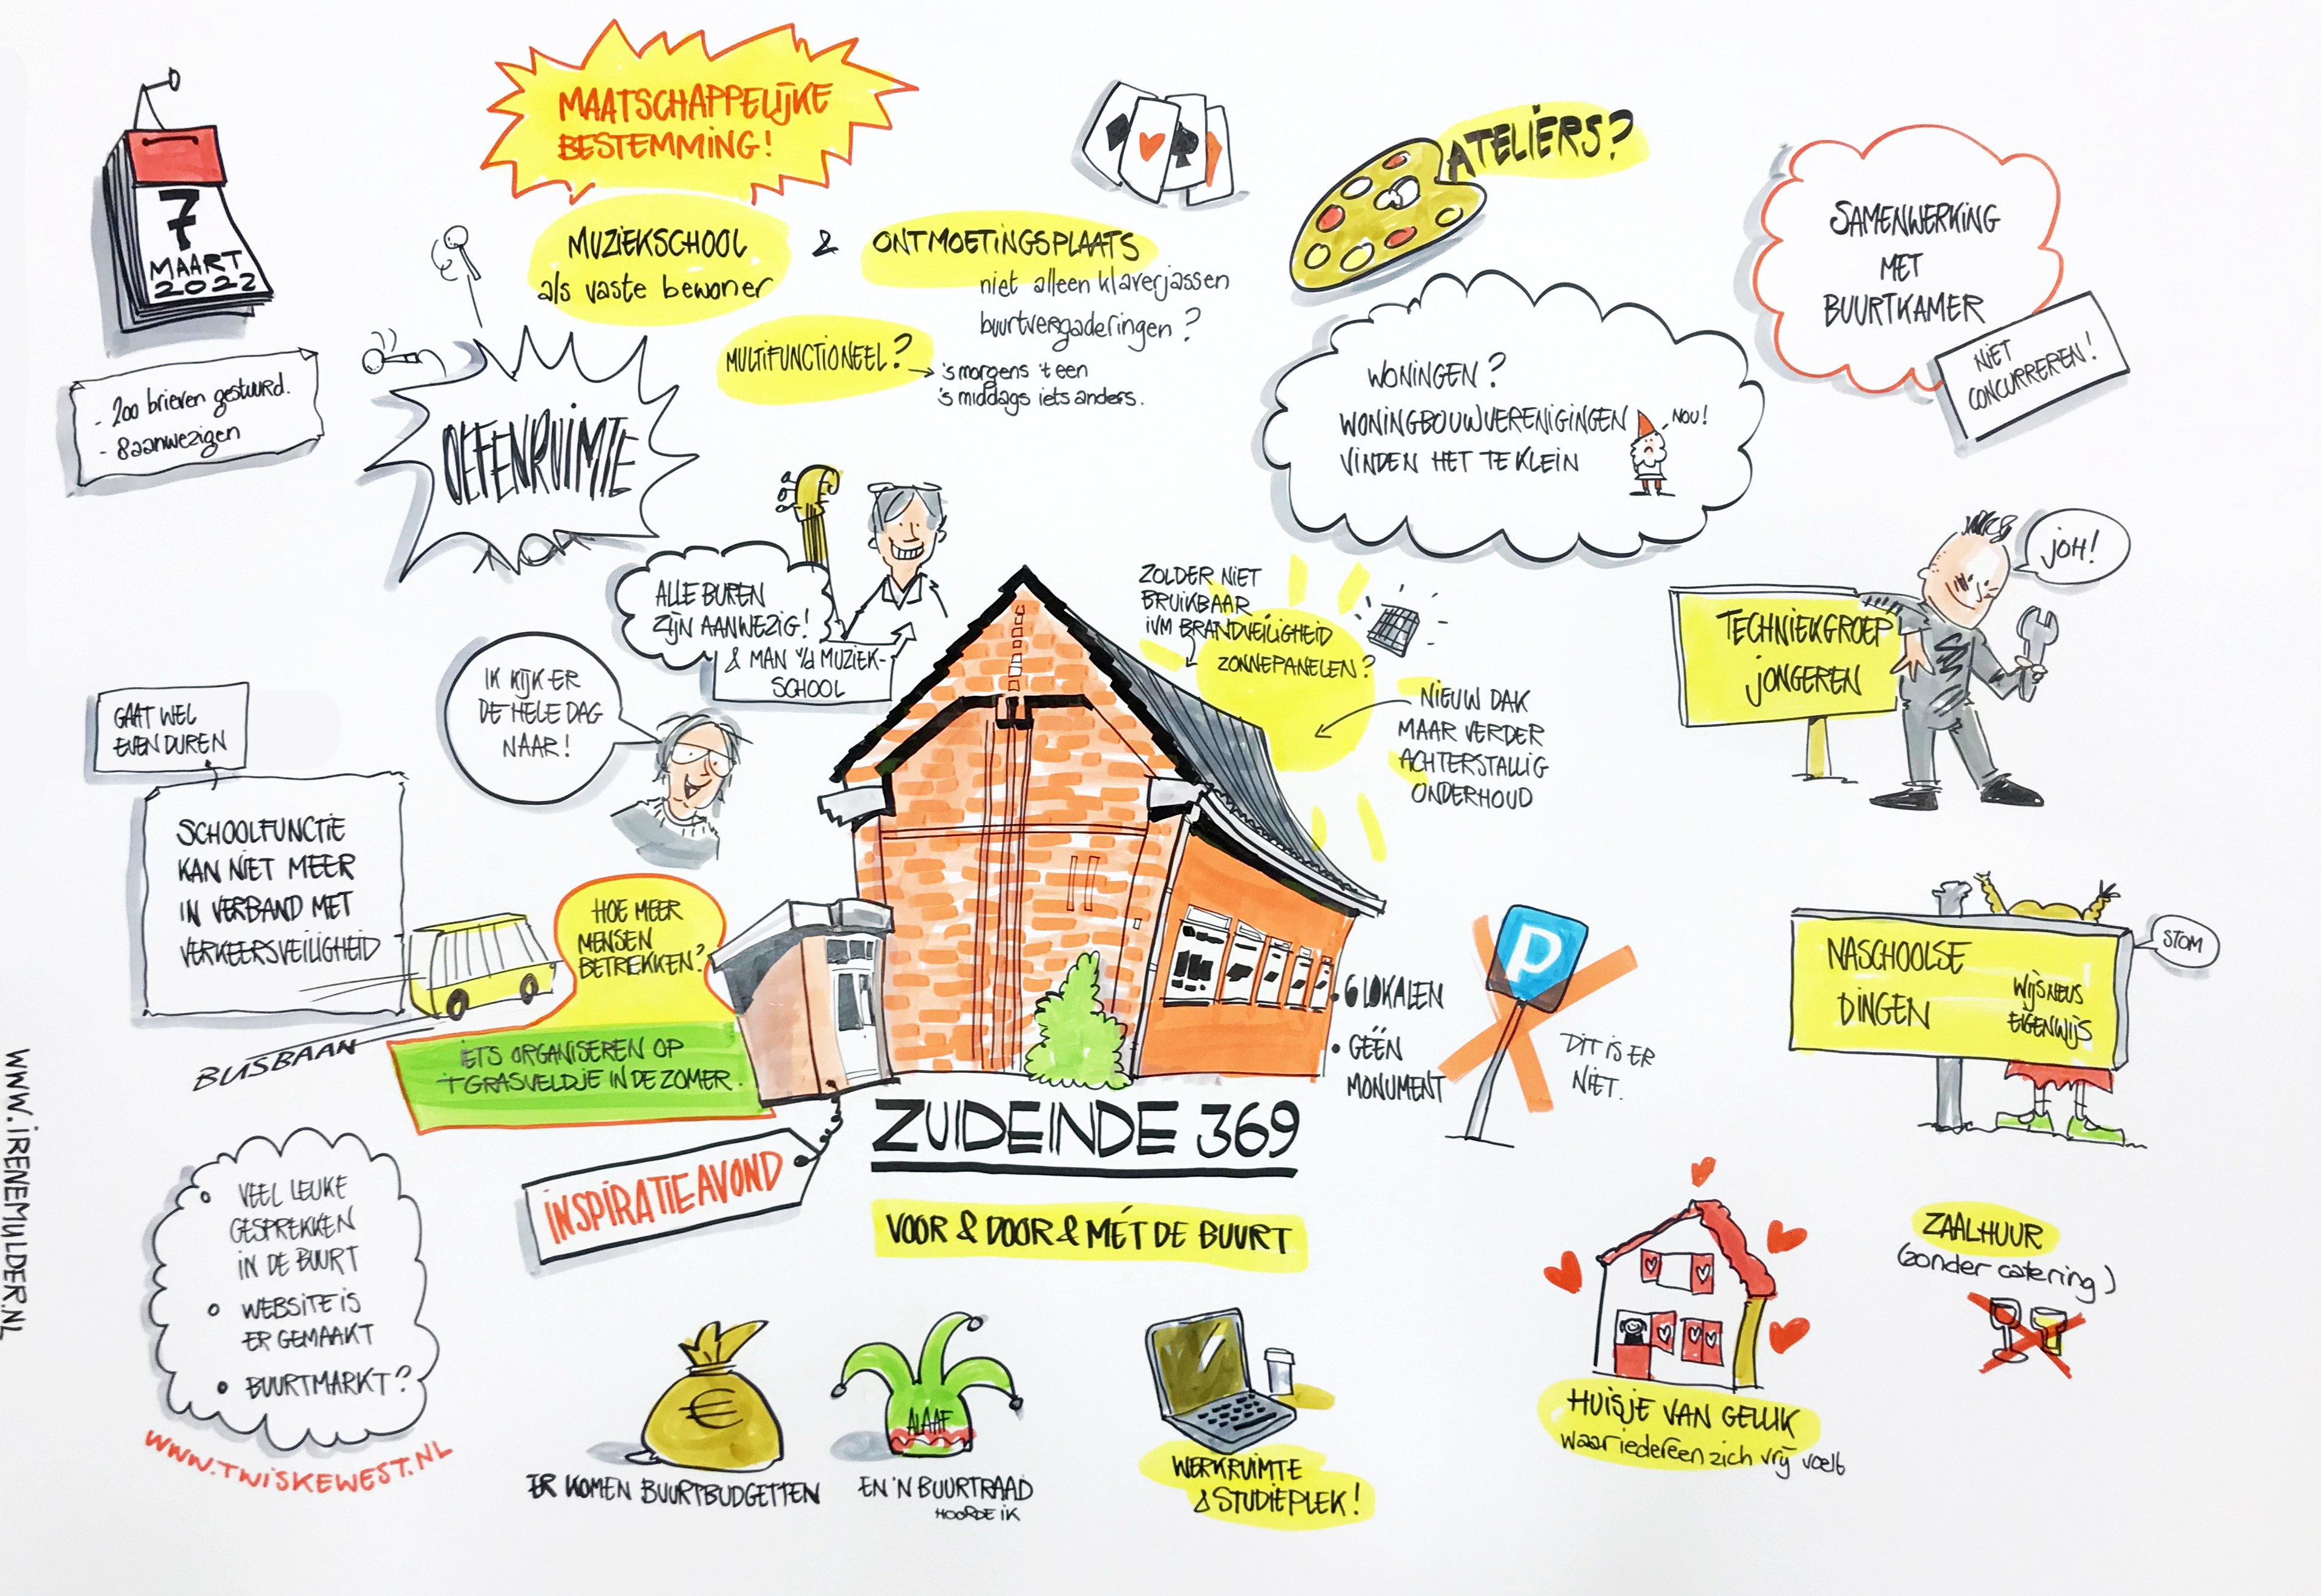 MAATSCHAPPELIJKE
BESTEMMING!
7
MAART
2022
- 200 brieven gestuurd.
- 8 aanwezigen
MUZIEKSCHOOL
als vaste bewoner
&
ONTMOETINGSPLAATS
niet alleen klaverjassen
buurtvergaderingen?
MULTIFUNCTIONEEL?
's morgens 't een
's middags iets anders.
ATELIÉRS?
SAMENWERKING
MET
BUURTKAMER
NIET
CONCURREREN!
OEFENRUIMTE
WONINGEN?
WONINGBOUWVERENIGINGEN
VINDEN HET TE KLEIN
NOU!
ALLE BUREN
ZIJN AANWEZIG!
& MAN v/d MUZIEK-
SCHOOL
ZOLDER NIET
BRUIKBAAR
IVM BRANDVEILIGHEID
ZONNEPANELEN?
NIEUW DAK
MAAR VERDER
ACHTERSTALLIG
ONDERHOUD
JOH!
TECHNIEKGROEP
JONGEREN
IK KIJK ER
DE HELE DAG
NAAR!
GAAT WEL
EVEN DUREN
SCHOOLFUNCTIE
KAN NIET MEER
IN VERBAND MET
VERKEERSVEILIGHEID
BUSBAAN
HOE MEER
MENSEN
BETREKKEN?
IETS ORGANISEREN OP
'T GRASVELDJE IN DE ZOMER.
• 6 LOKALEN
• GÉÉN
MONUMENT
P
DIT IS ER
NIET.
NASCHOOLSE
DINGEN
WIJSNEUS
EIGENWIJS
STOM
ZUIDEINDE 369
INSPIRATIEAVOND
VOOR & DOOR & MÉT DE BUURT
VEEL LEUKE
GESPREKKEN
IN DE BUURT
WEBSITE IS
ER GEMAAKT
BUURTMARKT?
WWW.TWISKEWEST.NL
€
ER KOMEN BUURTBUDGETTEN
ALAAF
EN 'N BUURTRAAD
HOORDE IK
WERKRUIMTE
& STUDIEPLEK!
HUISJE VAN GELUK
waar iedereen zich vrij voelt
ZAALHUUR
(zonder catering)
WWW.IRENEMULDER.NL